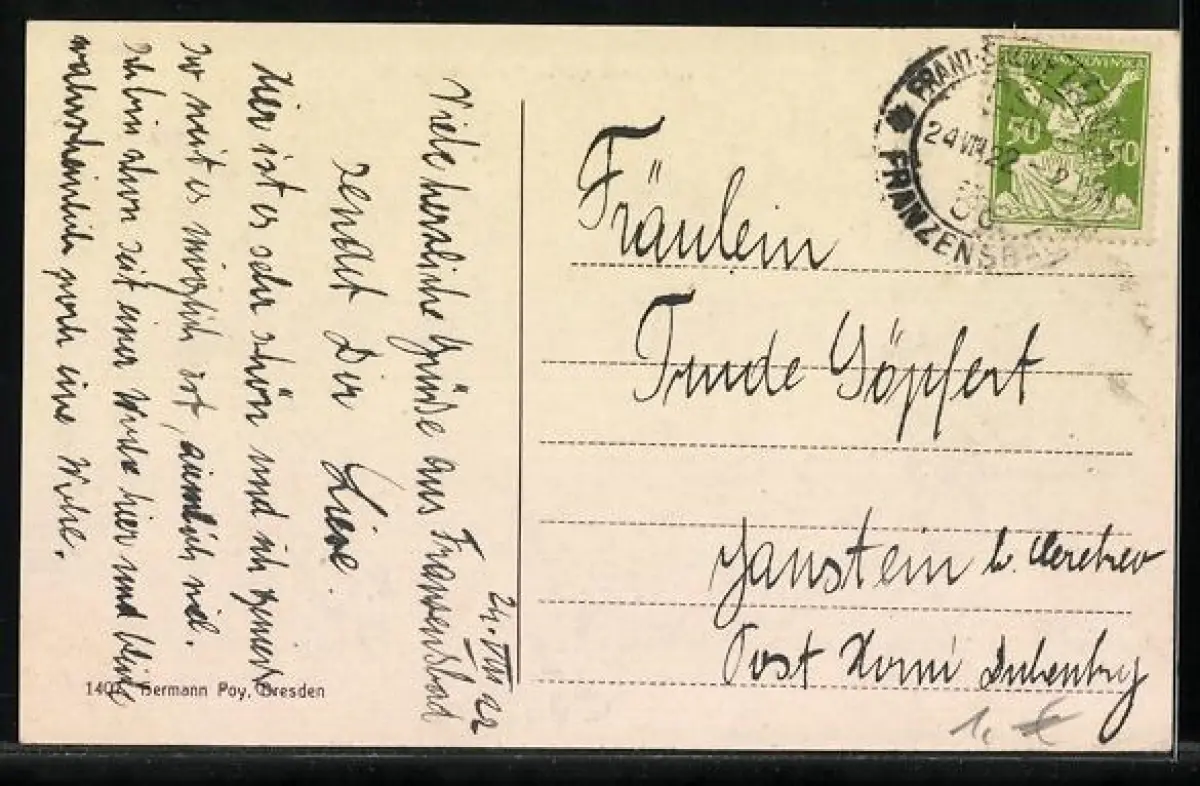 24.VIII 22
Viele herzliche Grüße aus Franzensbad
sendet Dir Liese.
Hier ist es sehr schön und ich genieße
so weit es möglich ist, ziemlich viel.
Ich bin schon seit einer Woche hier und bleibe
wahrscheinlich noch eine Woche.
1407 Hermann Poy, Dresden
FRANT.
24 VIII 22
FRANZENSBAD
ČESKOSLOVENSKÁ
50 50
Fräulein
Trude Göpfert
Janstein b.
Post Horni Dubenky
1.